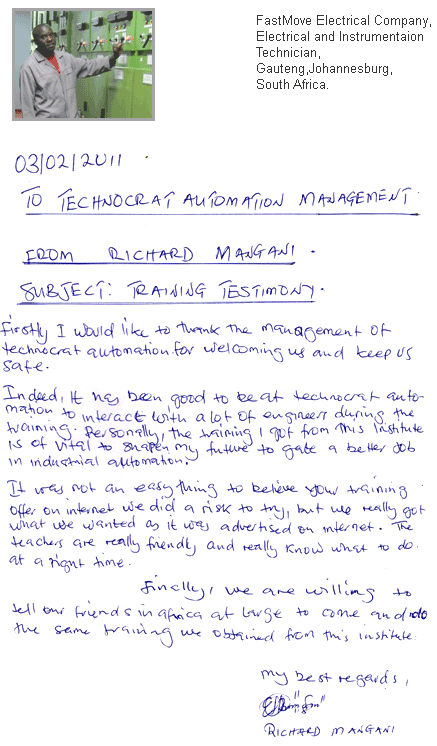 FastMove Electrical Company,
Electrical and Instrumentaion
Technician,
Gauteng,Johannesburg,
South Africa.
03/02/2011
TO TECHNOCRAT AUTOMATION MANAGEMENT.
FROM RICHARD MANGANI.
SUBJECT: TRAINING TESTIMONY.
Firstly I would like to thank the management of
technocrat automation for welcoming us and keep us
safe.
Indeed, It has been good to be at technocrat auto-
mation to interact with a lot of engineers during the
training. Personally, the training I got from this Institute
is of vital to shapen my future to gate a better job
in industrial automation.
It was not an easy thing to believe your training
offer on internet we did a risk to try, but we really got
what we wanted as it was advertised on internet. The
teachers are really friendly and really know what to do
at a right time.
Finally, we are willing to
tell our friends in africa at large to come and do
the same training we obtained from this institute
my best regards,
RICHARD MANGANI